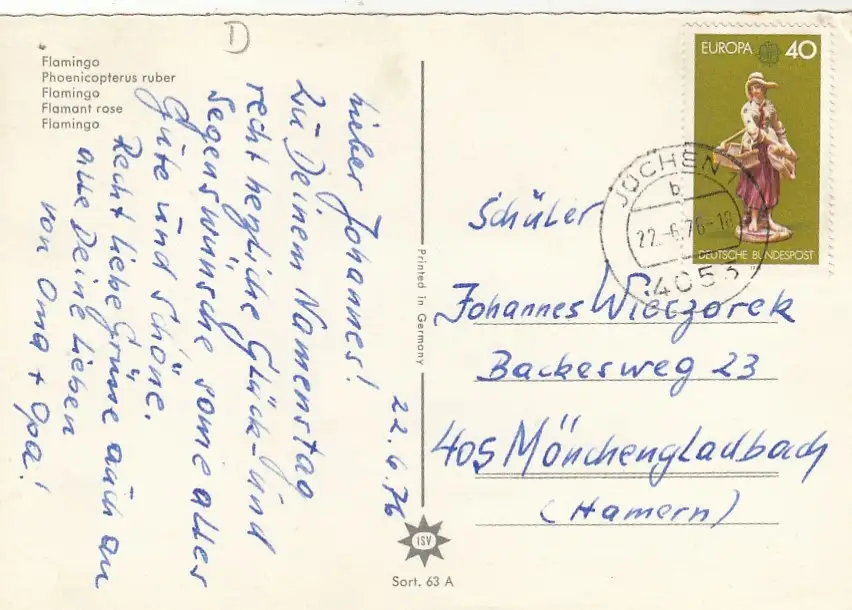 D
Flamingo
Phoenicopterus ruber
Flamingo
Flamant rose
Flamingo
22.6.76
Lieber Johannes!
Zu Deinem Namenstag
recht herzliche Glück- und
Segenswünsche sowie alles
Gute und Schöne.
Recht liebe Grüsse auch an
alle Deine Lieben
von Oma + Opa!
Printed in Germany
ISV
Sort. 63 A
EUROPA 40
DEUTSCHE BUNDESPOST
JÜCHEN
b
22.-6.76-18
4053
Schüler
Johannes Wieczorek
Backesweg 23
405 Mönchengladbach
(Hamern)